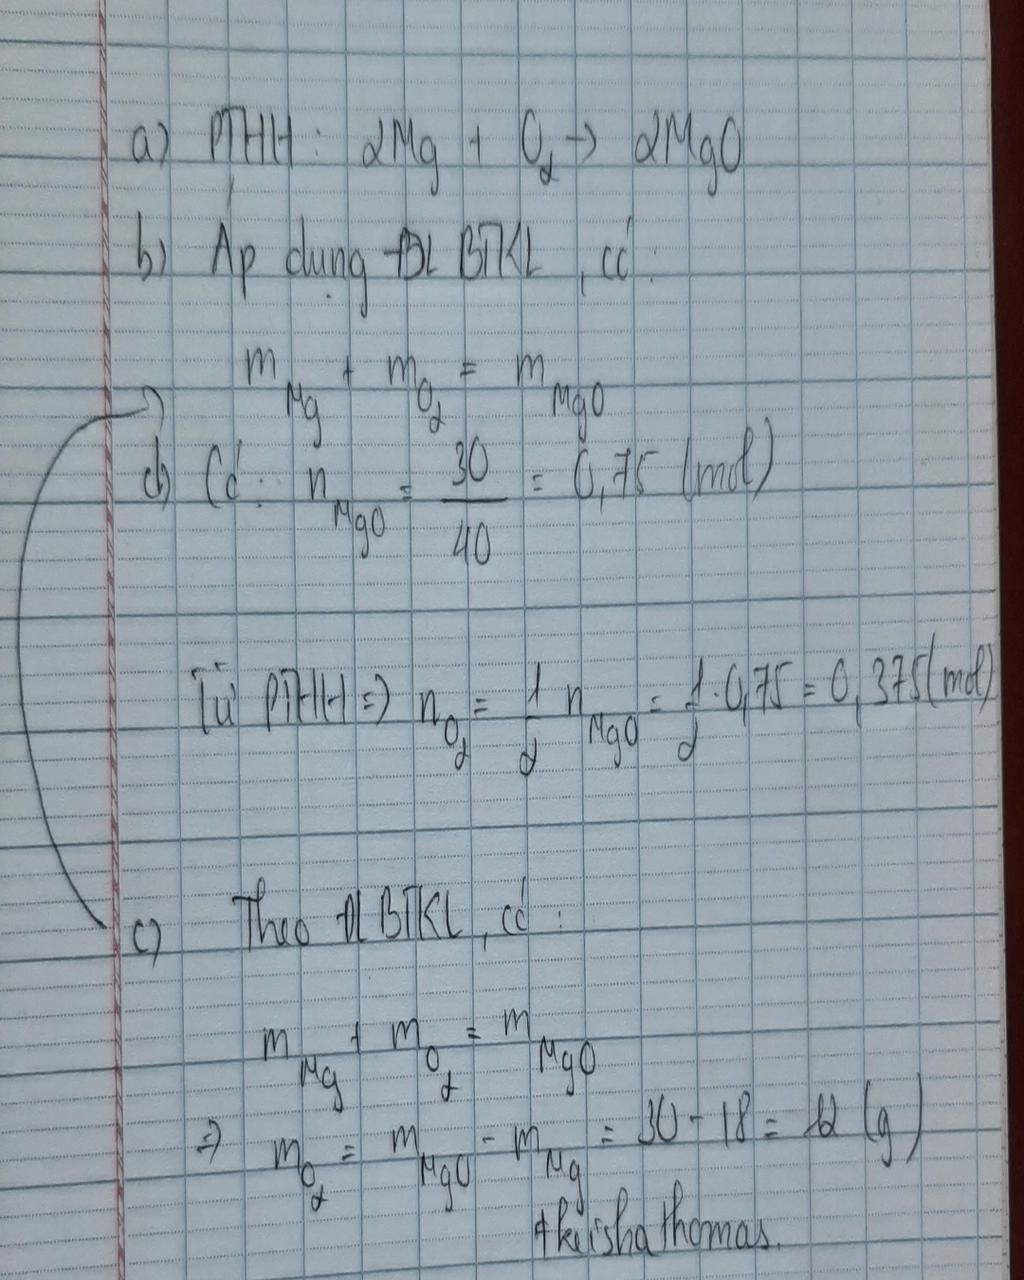 a) PTHH: 2Mg + O2 → 2MgO
b) Áp dụng ĐL BTKL, có:
m Mg + m O2 = m MgO
d) Có: n MgO = 30/40 = 0,75 (mol)
Từ PTHH => n O2 = 1/2 n MgO = 1/2 . 0,75 = 0,375 (mol)
c) Theo ĐL BTKL, có:
m Mg + m O2 = m MgO
=> m O2 = m MgO - m Mg = 30 - 18 = 12 (g)
#keishathomas.